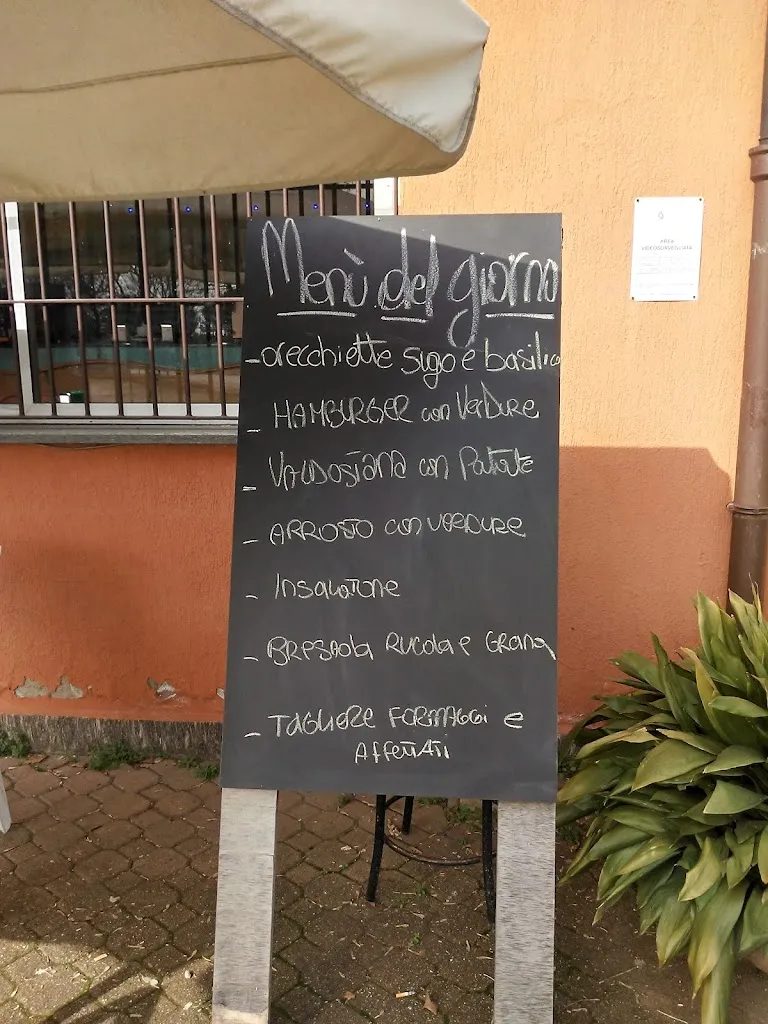 Menù del giorno
- orecchiette sugo e basilico
- HAMBURGER con VerDure
- VALDOSTANA con Patate
- ARROSTO con verdure
- Insalatone
- BRESAOla RUCOla e GRANA
- TAGLIERE FORMAGGI e
AFFETTATI
AREA
VIDEOSORVEGLIATA